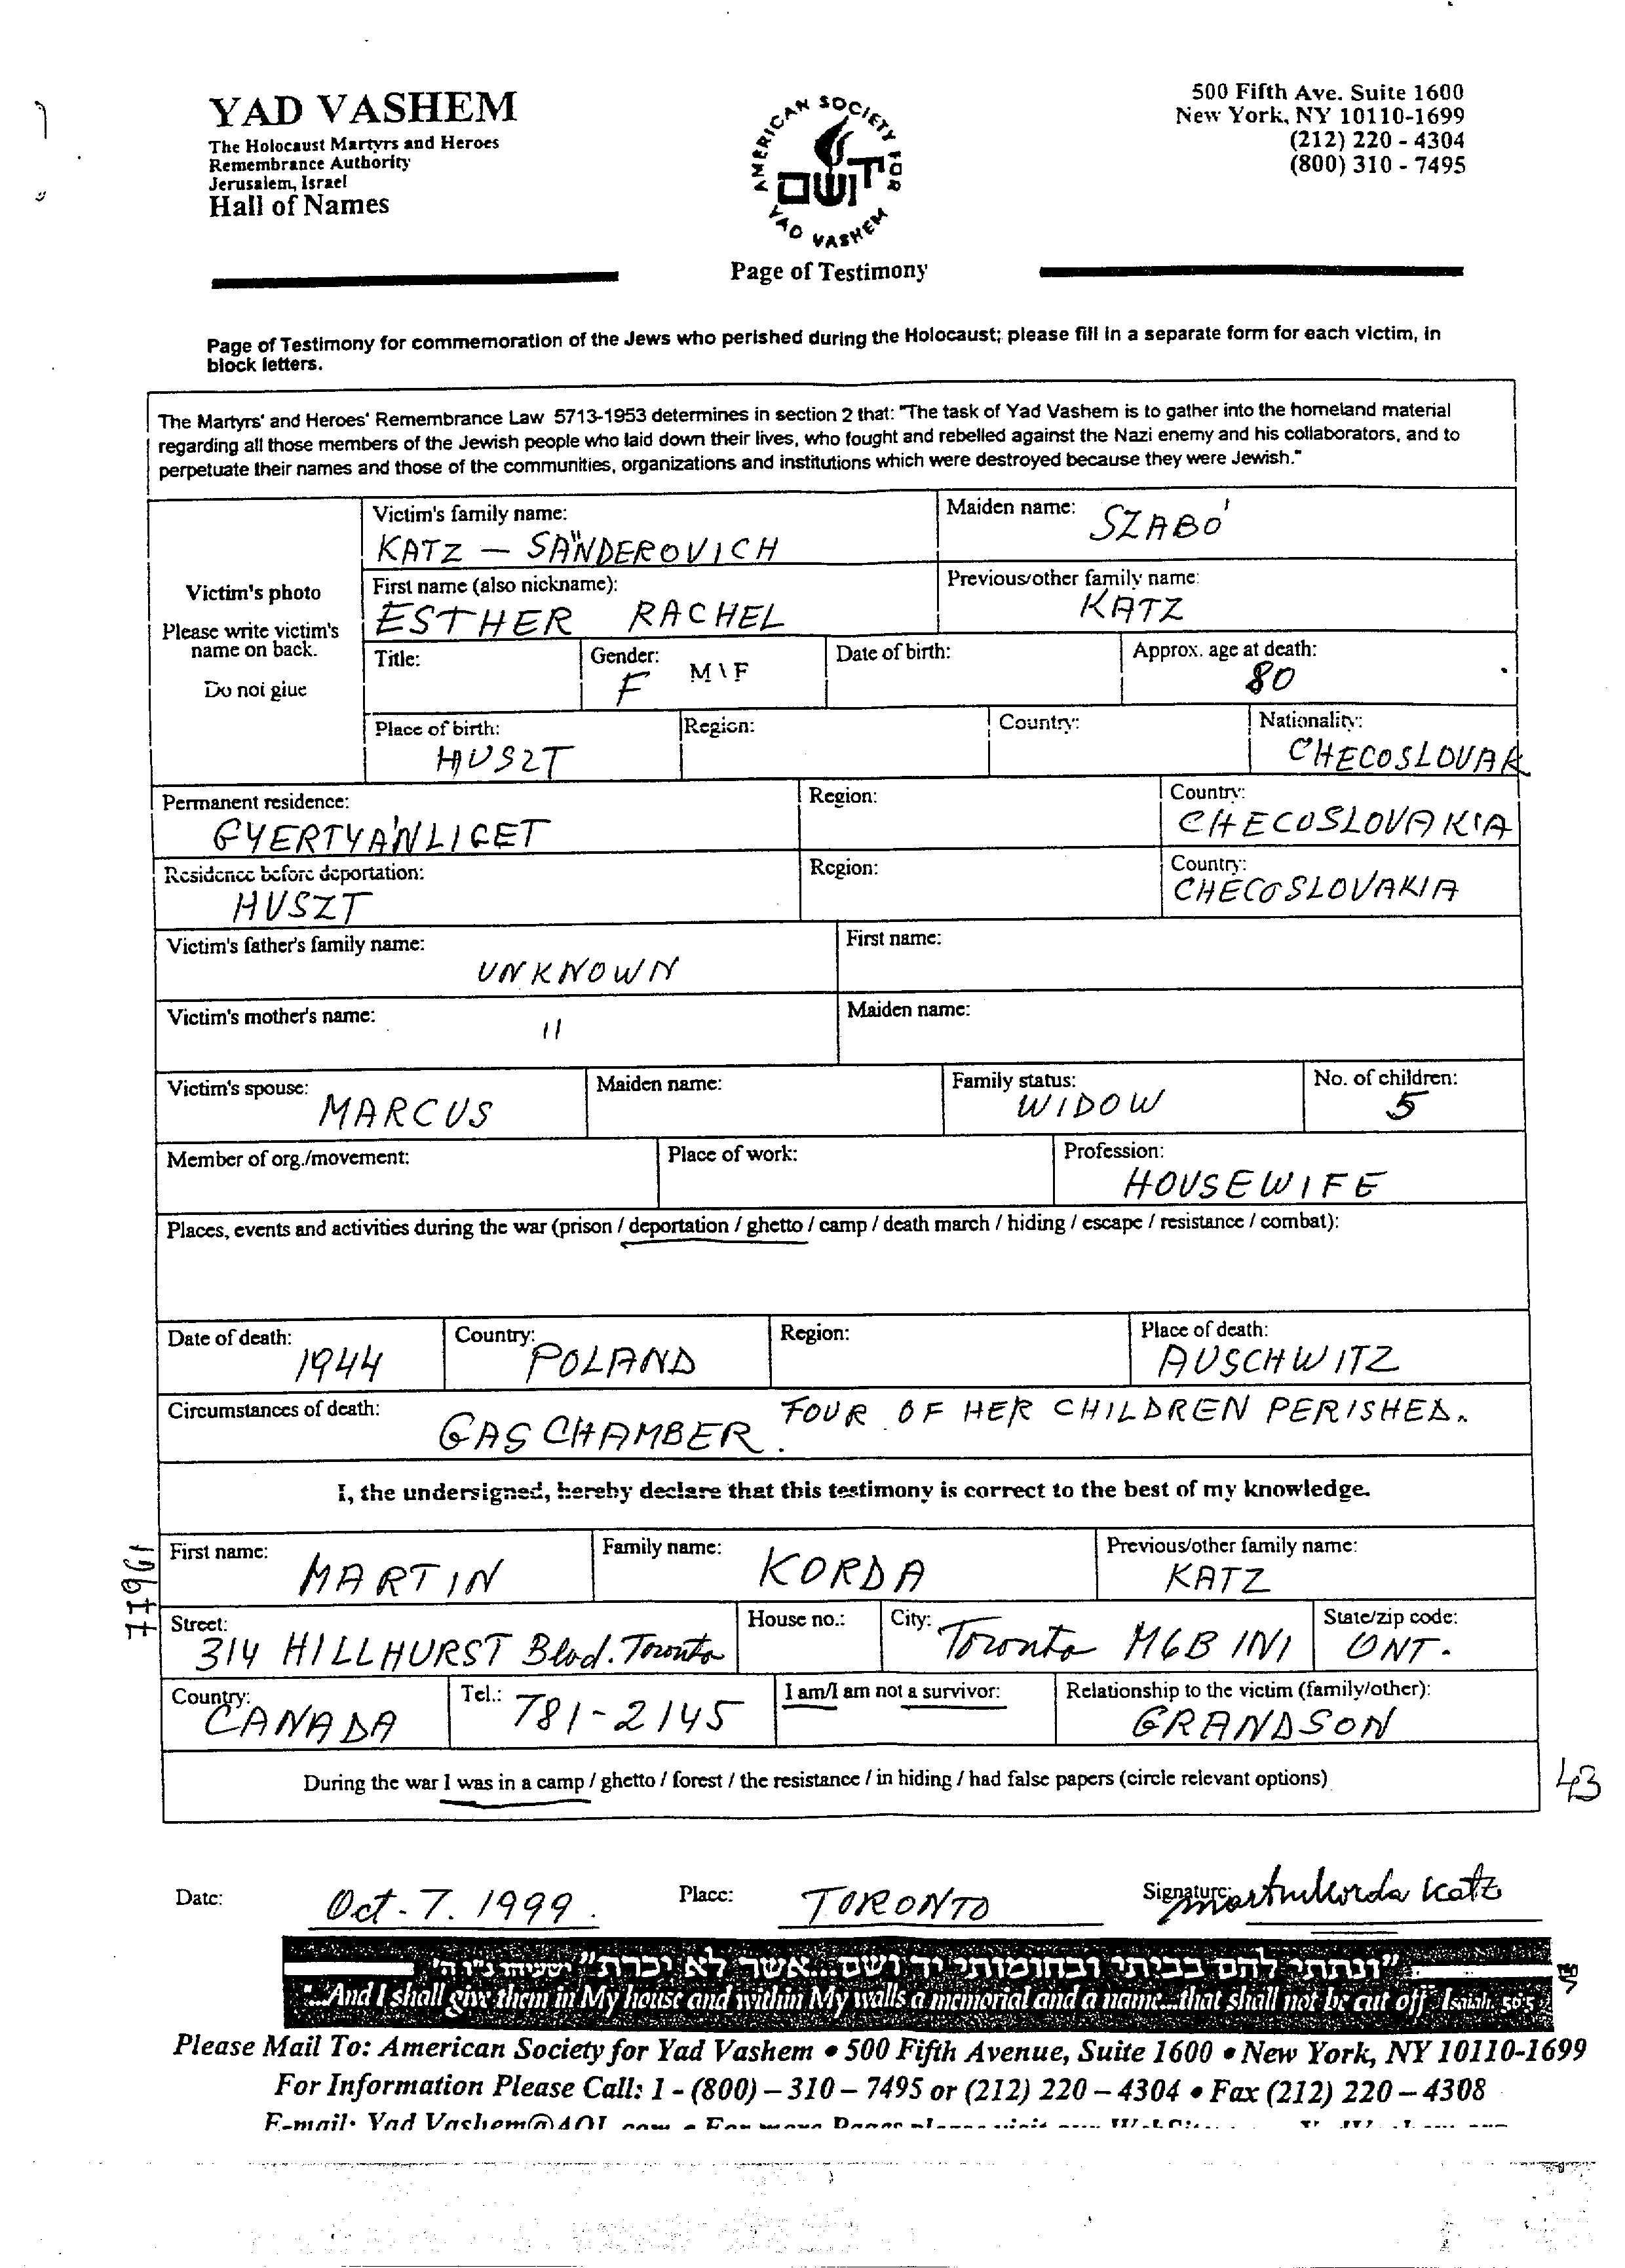 YAD VASHEM
The Holocaust Martyrs and Heroes
Remembrance Authority
Jerusalem, Israel
Hall of Names
AMERICAN SOCIETY FOR
YAD VASHEM
Page of Testimony
500 Fifth Ave. Suite 1600
New York, NY 10110-1699
(212) 220 - 4304
(800) 310 - 7495
Page of Testimony for commemoration of the Jews who perished during the Holocaust; please fill in a separate form for each victim, in
block letters.
The Martyrs' and Heroes' Remembrance Law 5713-1953 determines in section 2 that: "The task of Yad Vashem is to gather into the homeland material
regarding all those members of the Jewish people who laid down their lives, who fought and rebelled against the Nazi enemy and his collaborators, and to
perpetuate their names and those of the communities, organizations and institutions which were destroyed because they were Jewish."
Victim's photo
Please write victim's
name on back.
Do not glue
Victim's family name:
KATZ - SÄNDEROVICH
Maiden name: SZABÓ
First name (also nickname):
ESTHER RACHEL
Previous/other family name:
KATZ
Title:
Gender: M\F
F
Date of birth:
Approx. age at death:
80
Place of birth:
HUSZT
Region:
Country:
Nationality:
CHECOSLOVAK
Permanent residence:
GYERTYÁNLIGET
Region:
Country:
CHECOSLOVAKIA
Residence before deportation:
HUSZT
Region:
Country:
CHECOSLOVAKIA
Victim's father's family name:
UNKNOWN
First name:
Victim's mother's name:
"
Maiden name:
Victim's spouse:
MARCUS
Maiden name:
Family status:
WIDOW
No. of children:
5
Member of org./movement:
Place of work:
Profession:
HOUSEWIFE
Places, events and activities during the war (prison / deportation / ghetto / camp / death march / hiding / escape / resistance / combat):
Date of death:
1944
Country:
POLAND
Region:
Place of death:
AUSCHWITZ
Circumstances of death:
GAS CHAMBER. FOUR OF HER CHILDREN PERISHED.
I, the undersigned, hereby declare that this testimony is correct to the best of my knowledge.
77961
First name:
MARTIN
Family name:
KORDA
Previous/other family name:
KATZ
Street:
314 HILLHURST Blvd. Toronto
House no.:
City:
Toronto M6B 1N1
State/zip code:
ONT.
Country:
CANADA
Tel.:
781-2145
I am/I am not a survivor:
Relationship to the victim (family/other):
GRANDSON
During the war I was in a camp / ghetto / forest / the resistance / in hiding / had false papers (circle relevant options)
43
Date: Oct - 7. 1999.
Place: TORONTO
Signature: Martin Korda Katz
"ונתתי להם בביתי ובחומותי יד ושם...אשר לא יכרת" ישעיהו נ"ו ה'
"...And I shall give them in My house and within My walls a memorial and a name...that shall not be cut off" Isaiah 56:5
Please Mail To: American Society for Yad Vashem • 500 Fifth Avenue, Suite 1600 • New York, NY 10110-1699
For Information Please Call: 1 - (800) – 310 – 7495 or (212) 220 – 4304 • Fax (212) 220 – 4308